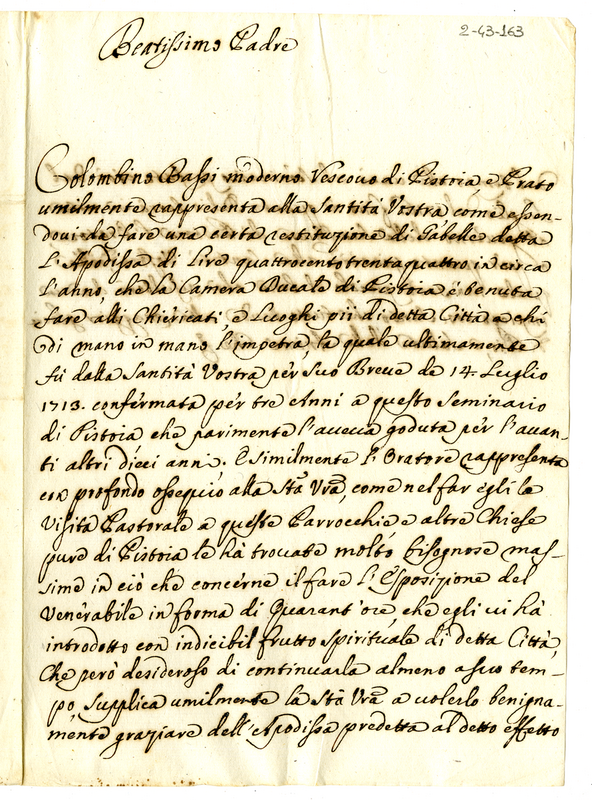 2-43-163
Beatissimo Padre
Colombino Bassi moderno Vescovo di Pistoia, e Prato
umilmente rappresenta alla Santità Vostra come essen-
dovi da fare una certa restituzione di Gabelle detta
l'Apodissa di Lire quattrocentotrentaquattro in circa
l'anno, che la Camera Ducale di Pistoia è tenuta
fare alli Chiericati e Luoghi pii di detta Città a chi
di mano in mano l'impetra, la quale ultimamente
fù dalla Santità Vostra per suo Breve de 14. Luglio
1713. confermata per tre Anni a questo Seminario
di Pistoia che parimente l'aveva goduta per l'avan-
ti altri dieci anni. E similmente l'Oratore rappresenta
con profondo ossequio alla Stà Vrã, come nel far egli la
Visita Pastorale a queste Parrocchie, e altre Chiese
pure di Pistoia le hà trovate molto bisognose mas-
sime in ciò che concerne il fare l'Esposizione del
Venerabile in forma di Quarant'ore, che egli vi hà
introdotto con indicibil frutto spirituale di detta Città,
Che però desideroso di continuarla almeno a suo tem-
po, supplica umilmente la Stà Vrã a volerlo benigna-
mente graziare dell'Apodissa predetta al detto effetto